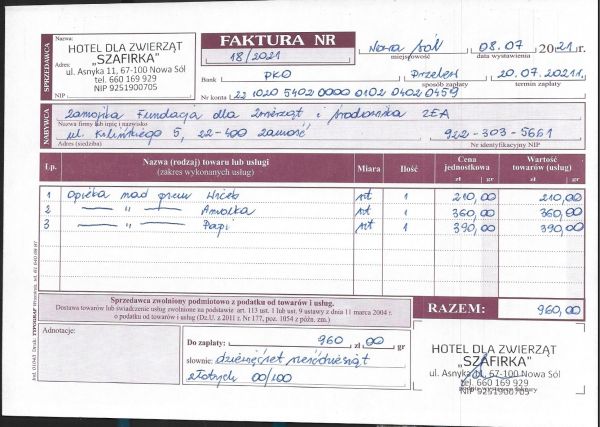 SPRZEDAWCA
Nazwa:
HOTEL DLA ZWIERZĄT
„SZAFIRKA”
Adres:
ul. Asnyka 11, 67-100 Nowa Sól
tel. 660 169 929
NIP
NIP 9251900705
FAKTURA NR
18/2021
Nowa Sól 08.07 2021 r.
miejscowość data wystawienia
Bank PKO Przelew 20.07.2021r.
sposób zapłaty termin zapłaty
Nr konta 22 1020 5402 0000 0102 0402 0459
NABYWCA
Zamojska Fundacja dla Zwierząt i Środowiska ZEA
Nazwa firmy lub imię i nazwisko
ul. Kilińskiego 5, 22-400 Zamość 922-303-5661
Adres (siedziba) Nr identyfikacyjny NIP
Lp. Nazwa (rodzaj) towaru lub usługi Miara Ilość Cena jednostkowa Wartość towarów (usług)
(zakres wykonanych usług) zł gr zł gr
1 Opieka nad psem szt 1 210,00 210,00
2 — " — szt 1 360,00 360,00
3 — " — Papi szt 1 390,00 390,00
Sprzedawca zwolniony podmiotowo z podatku od towarów i usług.
Dostawa towarów lub świadczenie usług zwolnione na podstawie art. 113 ust. 1 lub ust. 9 ustawy z dnia 11 marca 2004 r.
o podatku od towarów i usług (Dz.U. z 2011 r. Nr 177, poz. 1054 z późn. zm.)
RAZEM: 960,00
Adnotacje:
Do zapłaty: 960 zł 00 gr
słownie: dziewięćset sześćdziesiąt
złotych 00/100
HOTEL DLA ZWIERZĄT
„SZAFIRKA”
ul. Asnyka 11, 67-100 Nowa Sól
tel. 660 169 929
NIP 9251900705